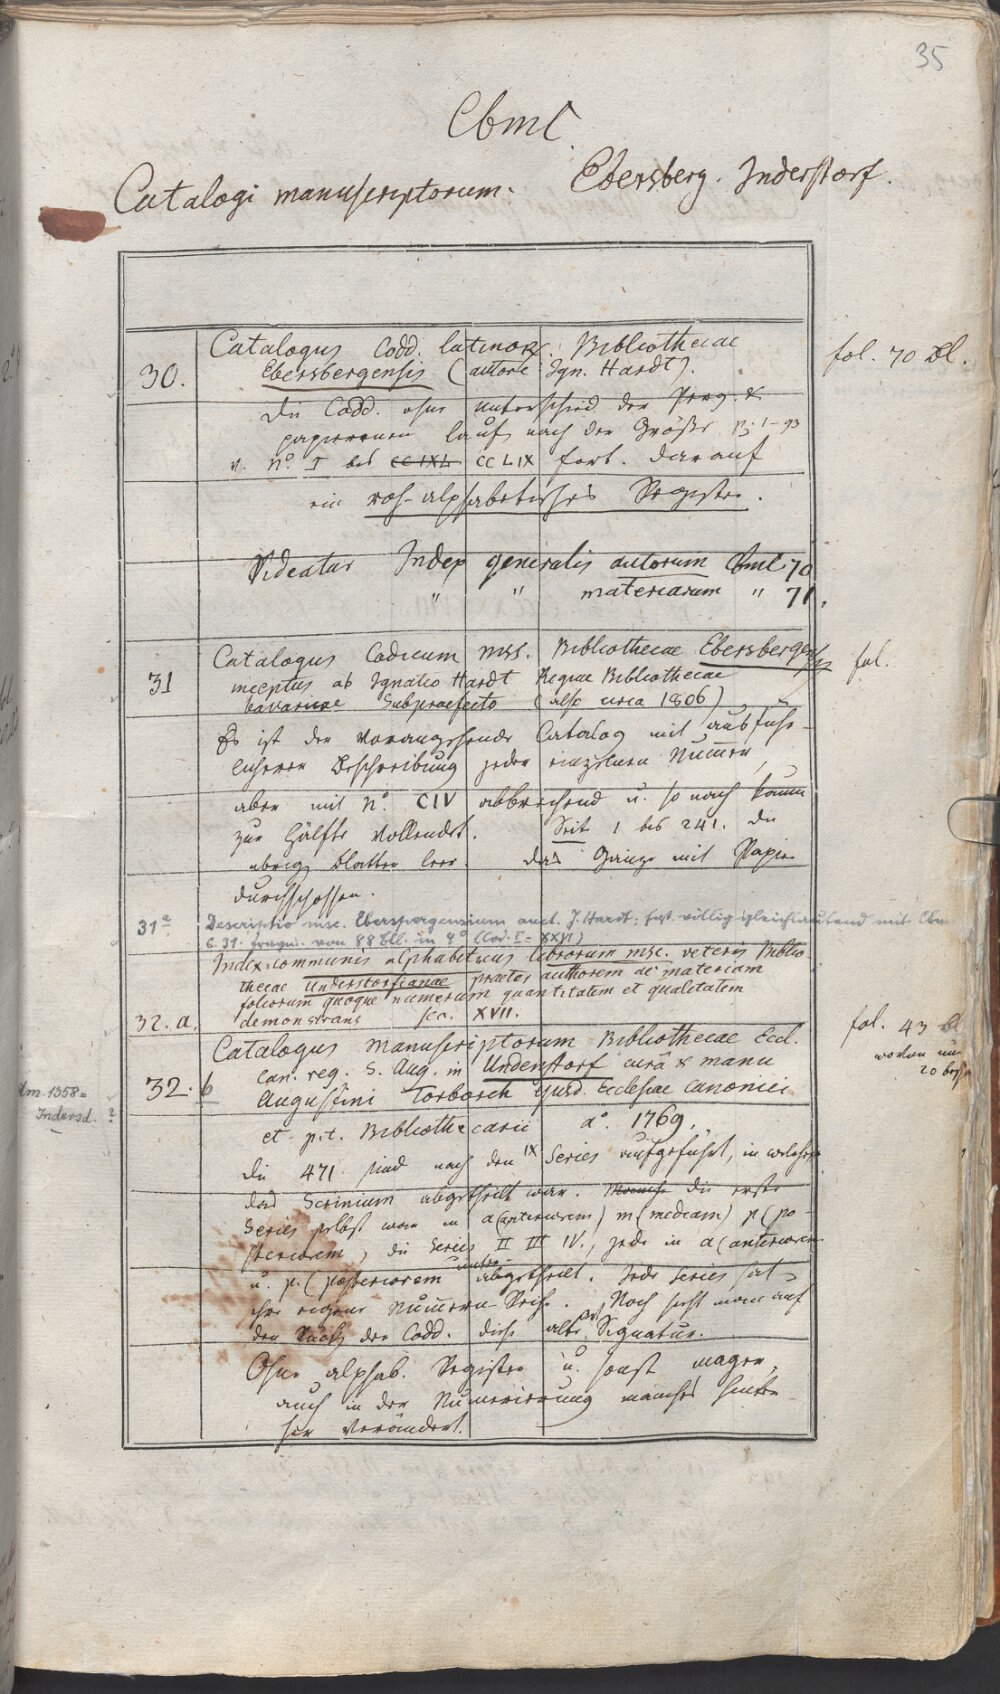 35
CbmC
Catalogi manuscriptorum. Ebersberg. Inderstorf.
30.
Catalogus Codd. latinor. Bibliothecae
Ebersbergensis (autore Ign. Hardt).
fol. 70 Bl.
Die Codd. ohne Unterschied der Perg. &
papierenen laufen nach der Größe 1-93
v. No. I bis CCIXL CCLIX fort. Darauf
ein roh-alphabetisches Register.
Videatur Index generalis autorum CbmC. 70
" " materiarum " 71.
31
Catalogus Codicum mss. Bibliothecae Ebersbergensis
inceptus ab Ignatio Hardt Regiae Bibliothecae
bavaricae Subpraefecto (also circa 1806)
fol.
Es ist der vorangehende Catalog mit ausführ-
licherer Beschreibung jeder einzelnen Numer,
aber mit No. CIV abbrechend u. so nach kaum
zur Hälfte vollendet. Seite 1 bis 241. die
übrig. Blätter leer. das Ganze mit Papier
durchschossen.
31a
Descriptio msc. Eberspergensium auct. J. Hardt; fast völlig gleichlautend mit Cbm
C. 31. fragm. von 88 Bll. in 4o (Cod. I - XXVI)
32. a.
Index communis alphabeticus librorum msc. veteris Biblio-
thecae Understorfianae praeter authorem ac materiam
foliorum quoque numerum quantitatem et qualitatem
demonstrans sec. XVII.
32. b
Catalogus manuscriptorum Bibliothecae Eccl.
can. reg. S. Aug. in Understorf curâ & manu
Augustini Torbosch ejusd. Ecclesiae canonici
fol. 43 Bl
wovon nur
20 beschr
Clm 1358=
Indersd. ?
et p.t. Bibliothecarii ao. 1769.
Die 471 sind nach den IX Series aufgeführt, in welche
das Scrinium abgetheilt war. Manche die erste
Series selbst war in a (anteriorem) m (mediam) p (po-
steriorem), die Series II III IV., jede in a (anteriorem
u. p. (posteriorem unter-
abgetheilt. Jede Series hat
ihre eigene Numern-Reihe. Noch sieht man auf
den Rück. der Codd. diese alte Signatur.
Ohne alphab. Register u. sonst mager,
auch in der Numerierung manches hinter-
her verändert.